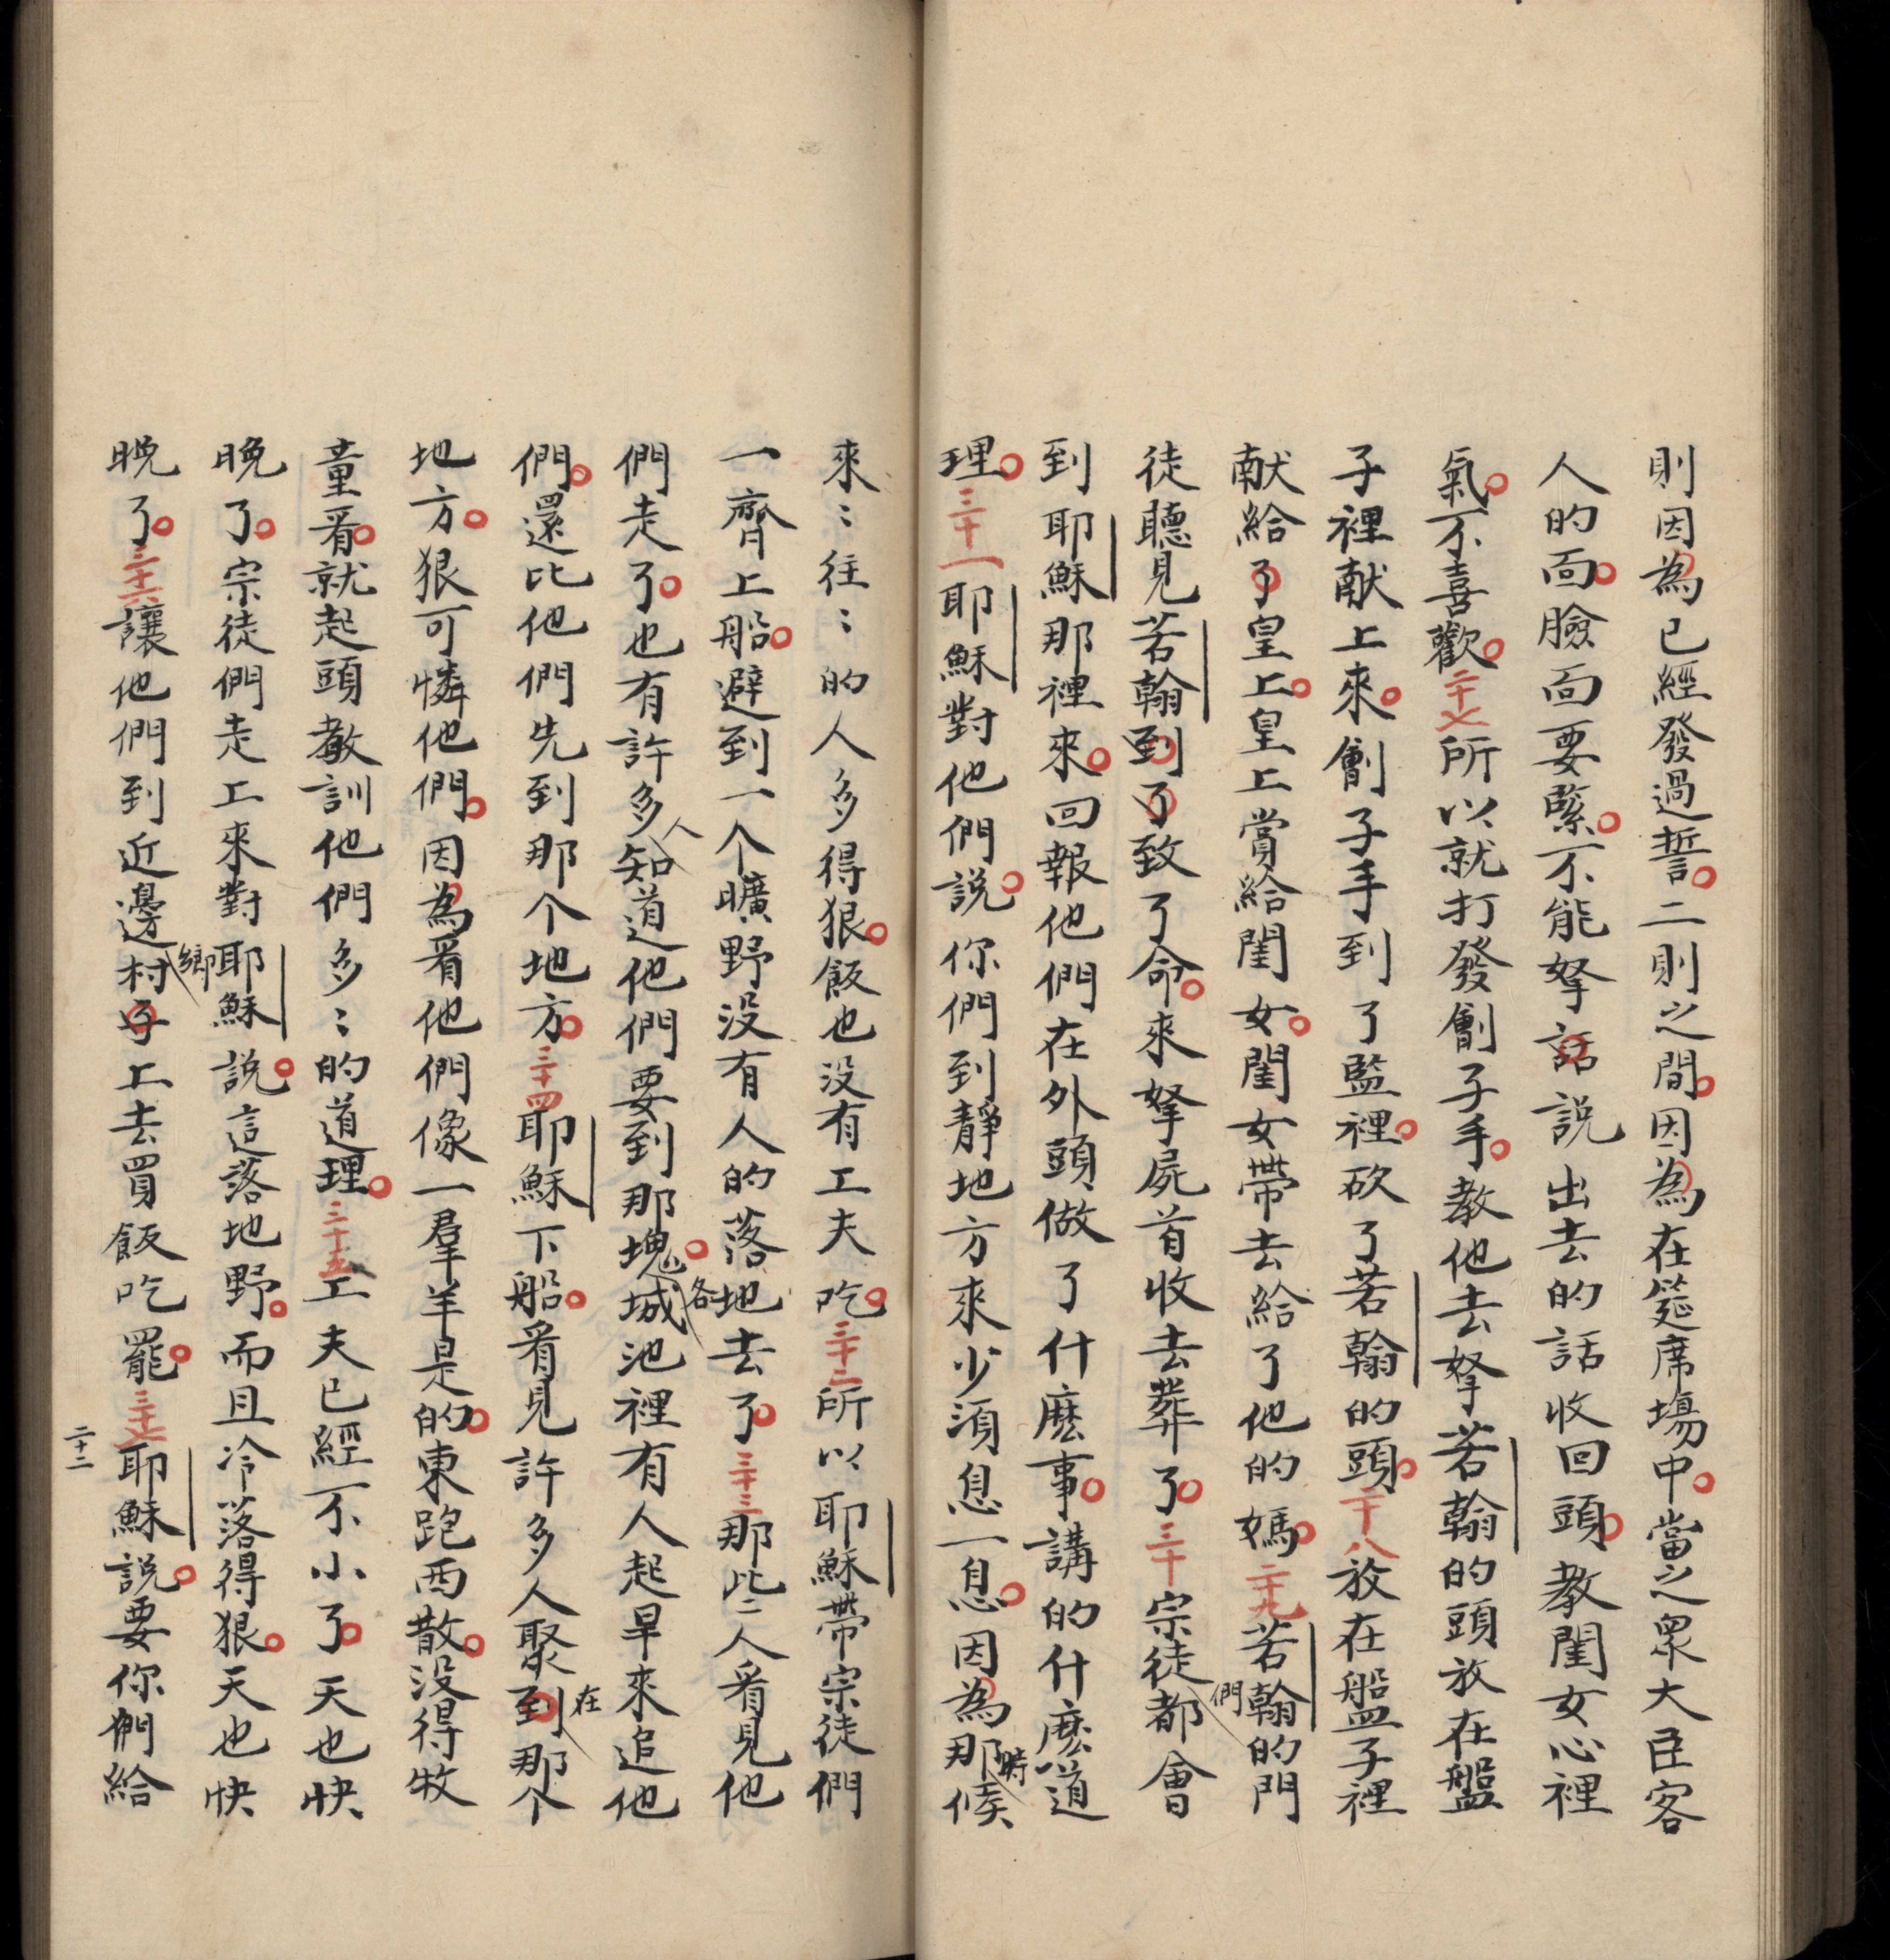 則因為已經發過誓。二則之間。因為在筵席塲中。當之衆大臣客
人的面。臉面要緊。不能拏話說出去的話收回頭。教閨女心裡
氣。不喜歡。二十七所以就打發劊子手。教他去拏若翰的頭放在盤
子裡献上來。劊子手到了監裡。砍了若翰的頭。二十八放在盤子裡
献給了皇上。皇上賞給閨女。閨女帶去給了他的媽。二十九若翰的門
徒聽見若翰到了致了命。來拏屍首收去葬了。三十宗徒們都會
到耶穌那裡來。回報他們在外頭做了什麽事。講的什麽道
理。三十一耶穌對他們說。你們到靜地方來少須息一息。因為那時候
來〻往〻的人多得狠。飯也没有工夫吃。三十二所以耶穌帶宗徒們
一齊上船。避到一个曠野没有人的落地去了。三十三那些人看見他
們走了。也有許多人知道他們要到那塊。各城池裡有人起早來追他
們。還比他們先到那个地方。三十四耶穌下船。看見許多人聚到在那个
地方。狠可憐他們。因為看他們像一羣羊是的。東跑西散。没得牧
童看。就起頭教訓他們多〻的道理。三十五工夫已經不小了。天也快
晚了。宗徒們走上來對耶穌說。這落地野。而且冷落得狠。天也快
晚了。三十六讓他們到近邊鄉村子上去買飯吃罷。三十七耶穌說。要你們給
二十二